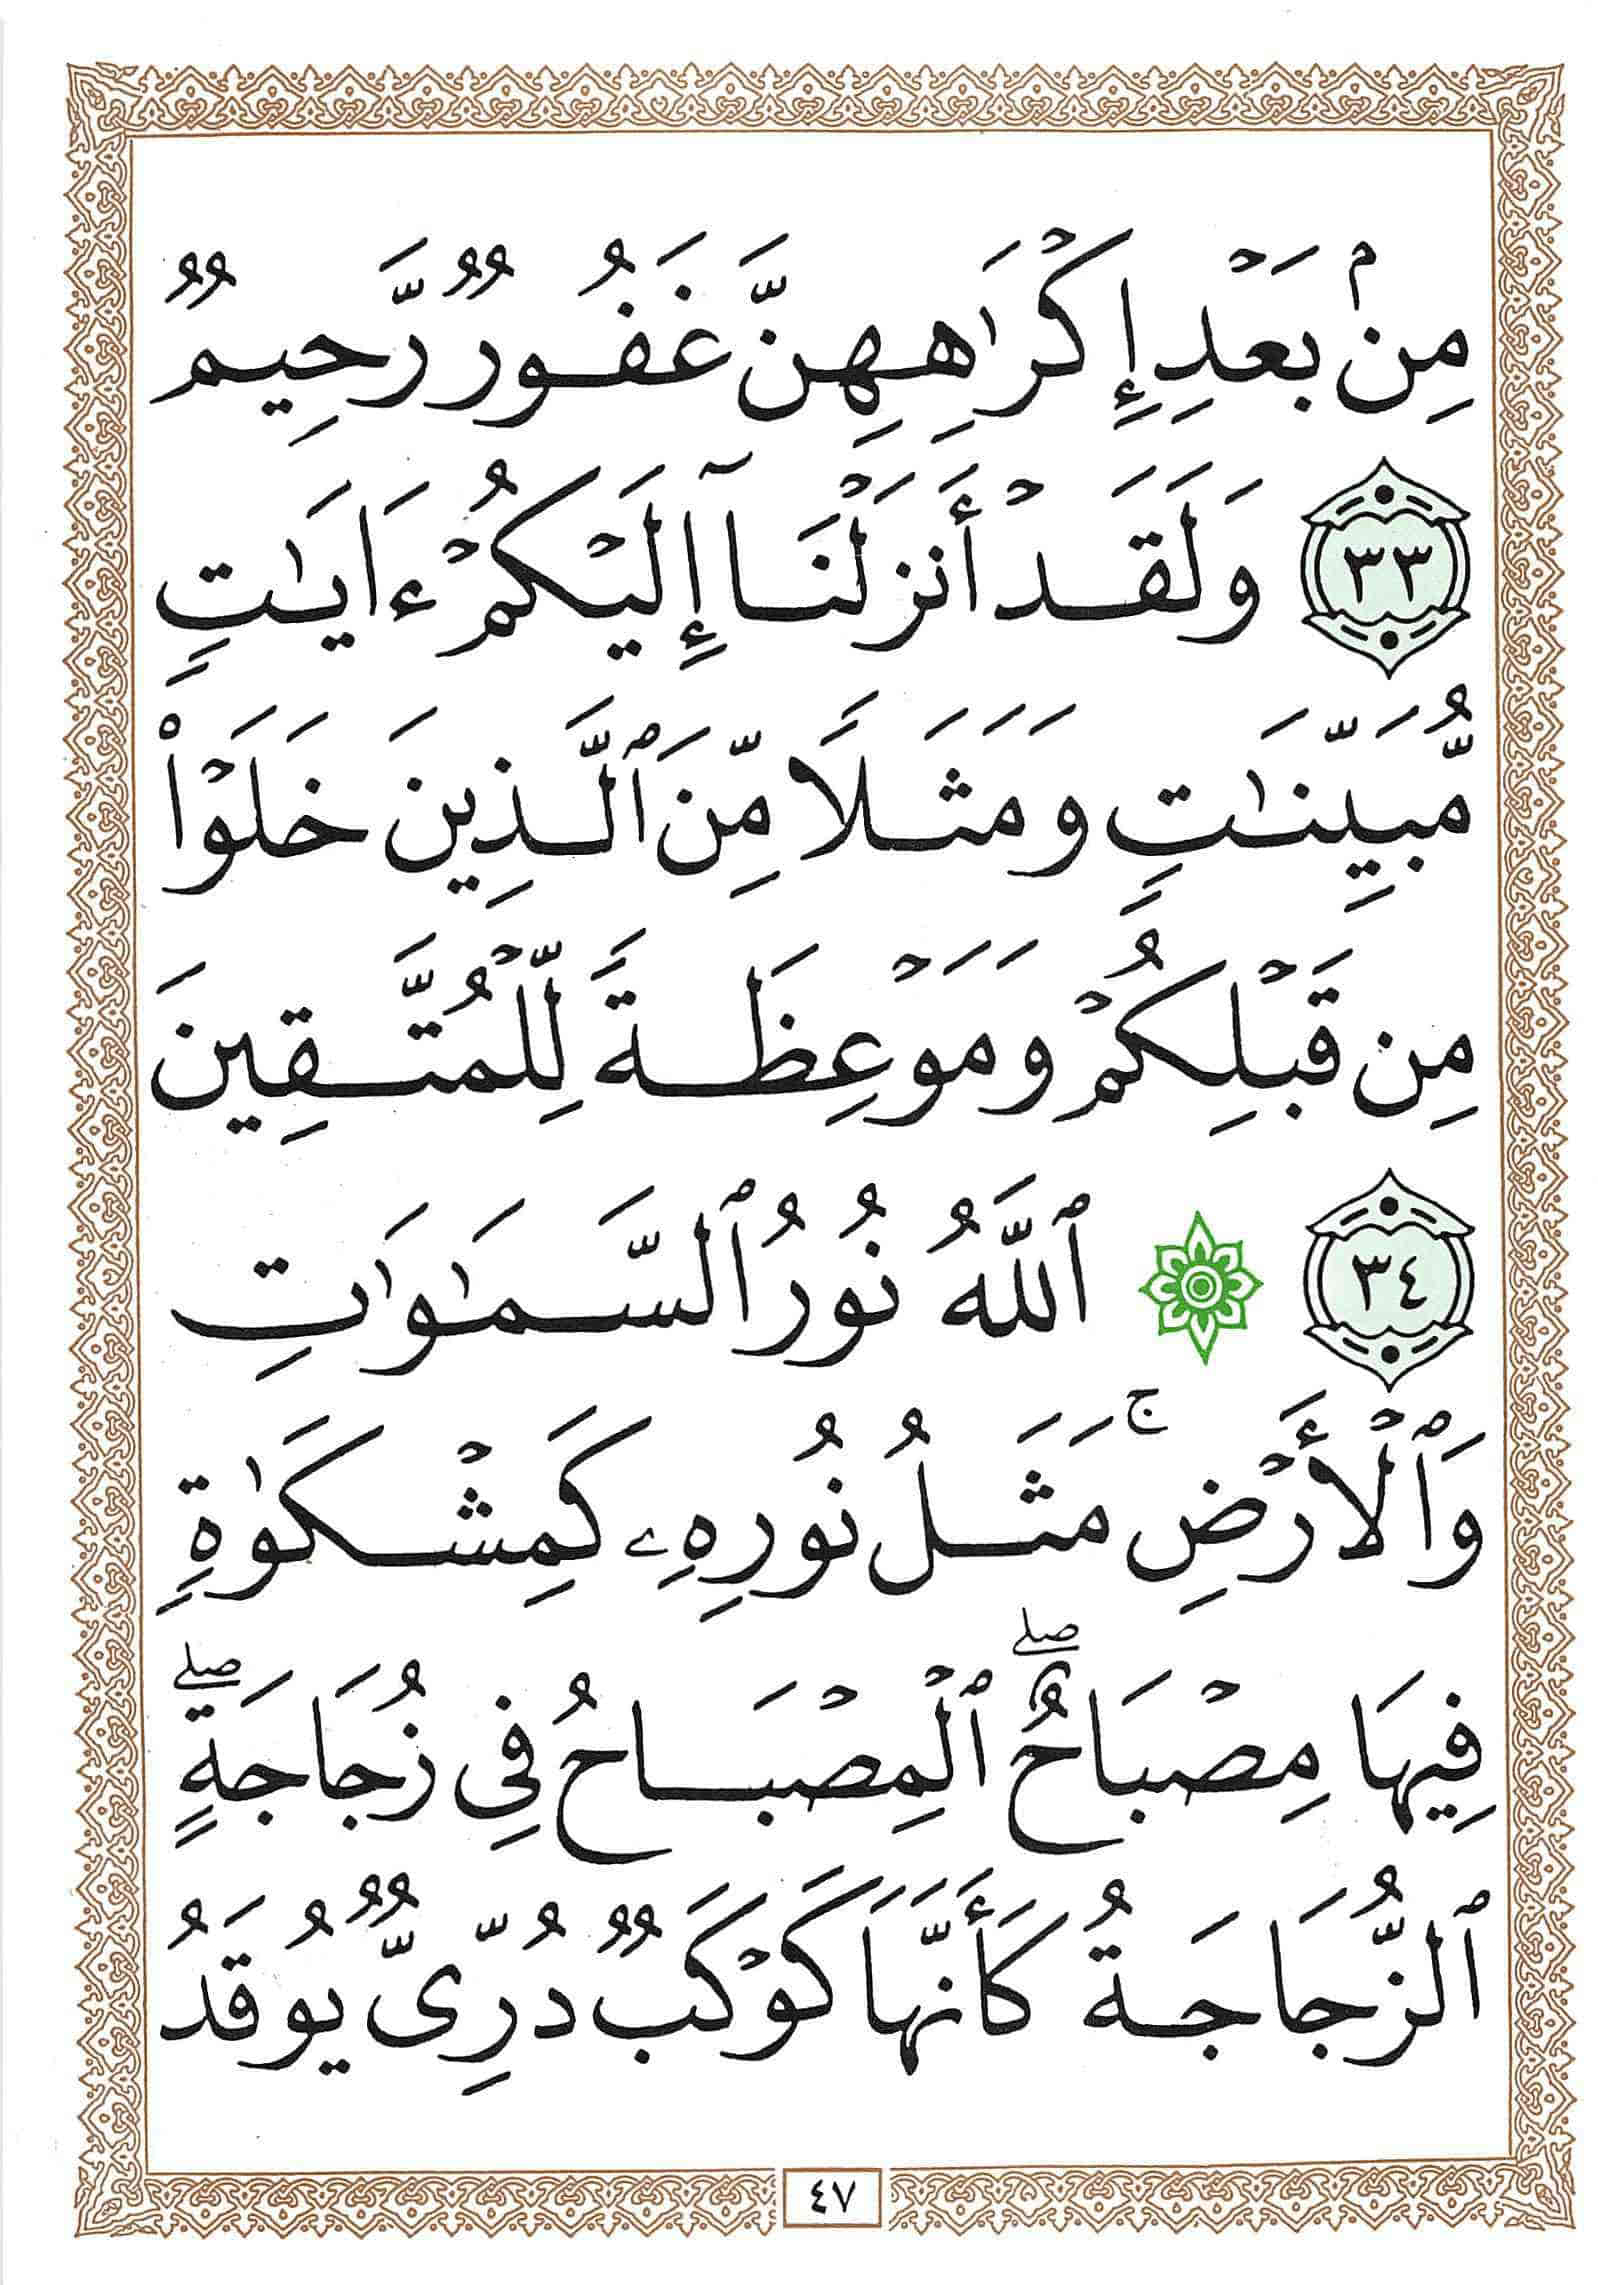 مِنۢ بَعْدِ إِكْرَٰهِهِنَّ غَفُورٌ رَّحِيمٌ
٣٣ وَلَقَدْ أَنزَلْنَآ إِلَيْكُمْ ءَايَٰتٍ
مُّبَيِّنَٰتٍ وَمَثَلًا مِّنَ ٱلَّذِينَ خَلَوْا۟
مِن قَبْلِكُمْ وَمَوْعِظَةً لِّلْمُتَّقِينَ
٣٤ ۞ ٱللَّهُ نُورُ ٱلسَّمَٰوَٰتِ
وَٱلْأَرْضِ ۚ مَثَلُ نُورِهِۦ كَمِشْكَوٰةٍ
فِيهَا مِصْبَاحٌ ۖ ٱلْمِصْبَاحُ فِى زُجَاجَةٍ ۖ
ٱلزُّجَاجَةُ كَأَنَّهَا كَوْكَبٌ دُرِّىٌّ يُوقَدُ
٤٧